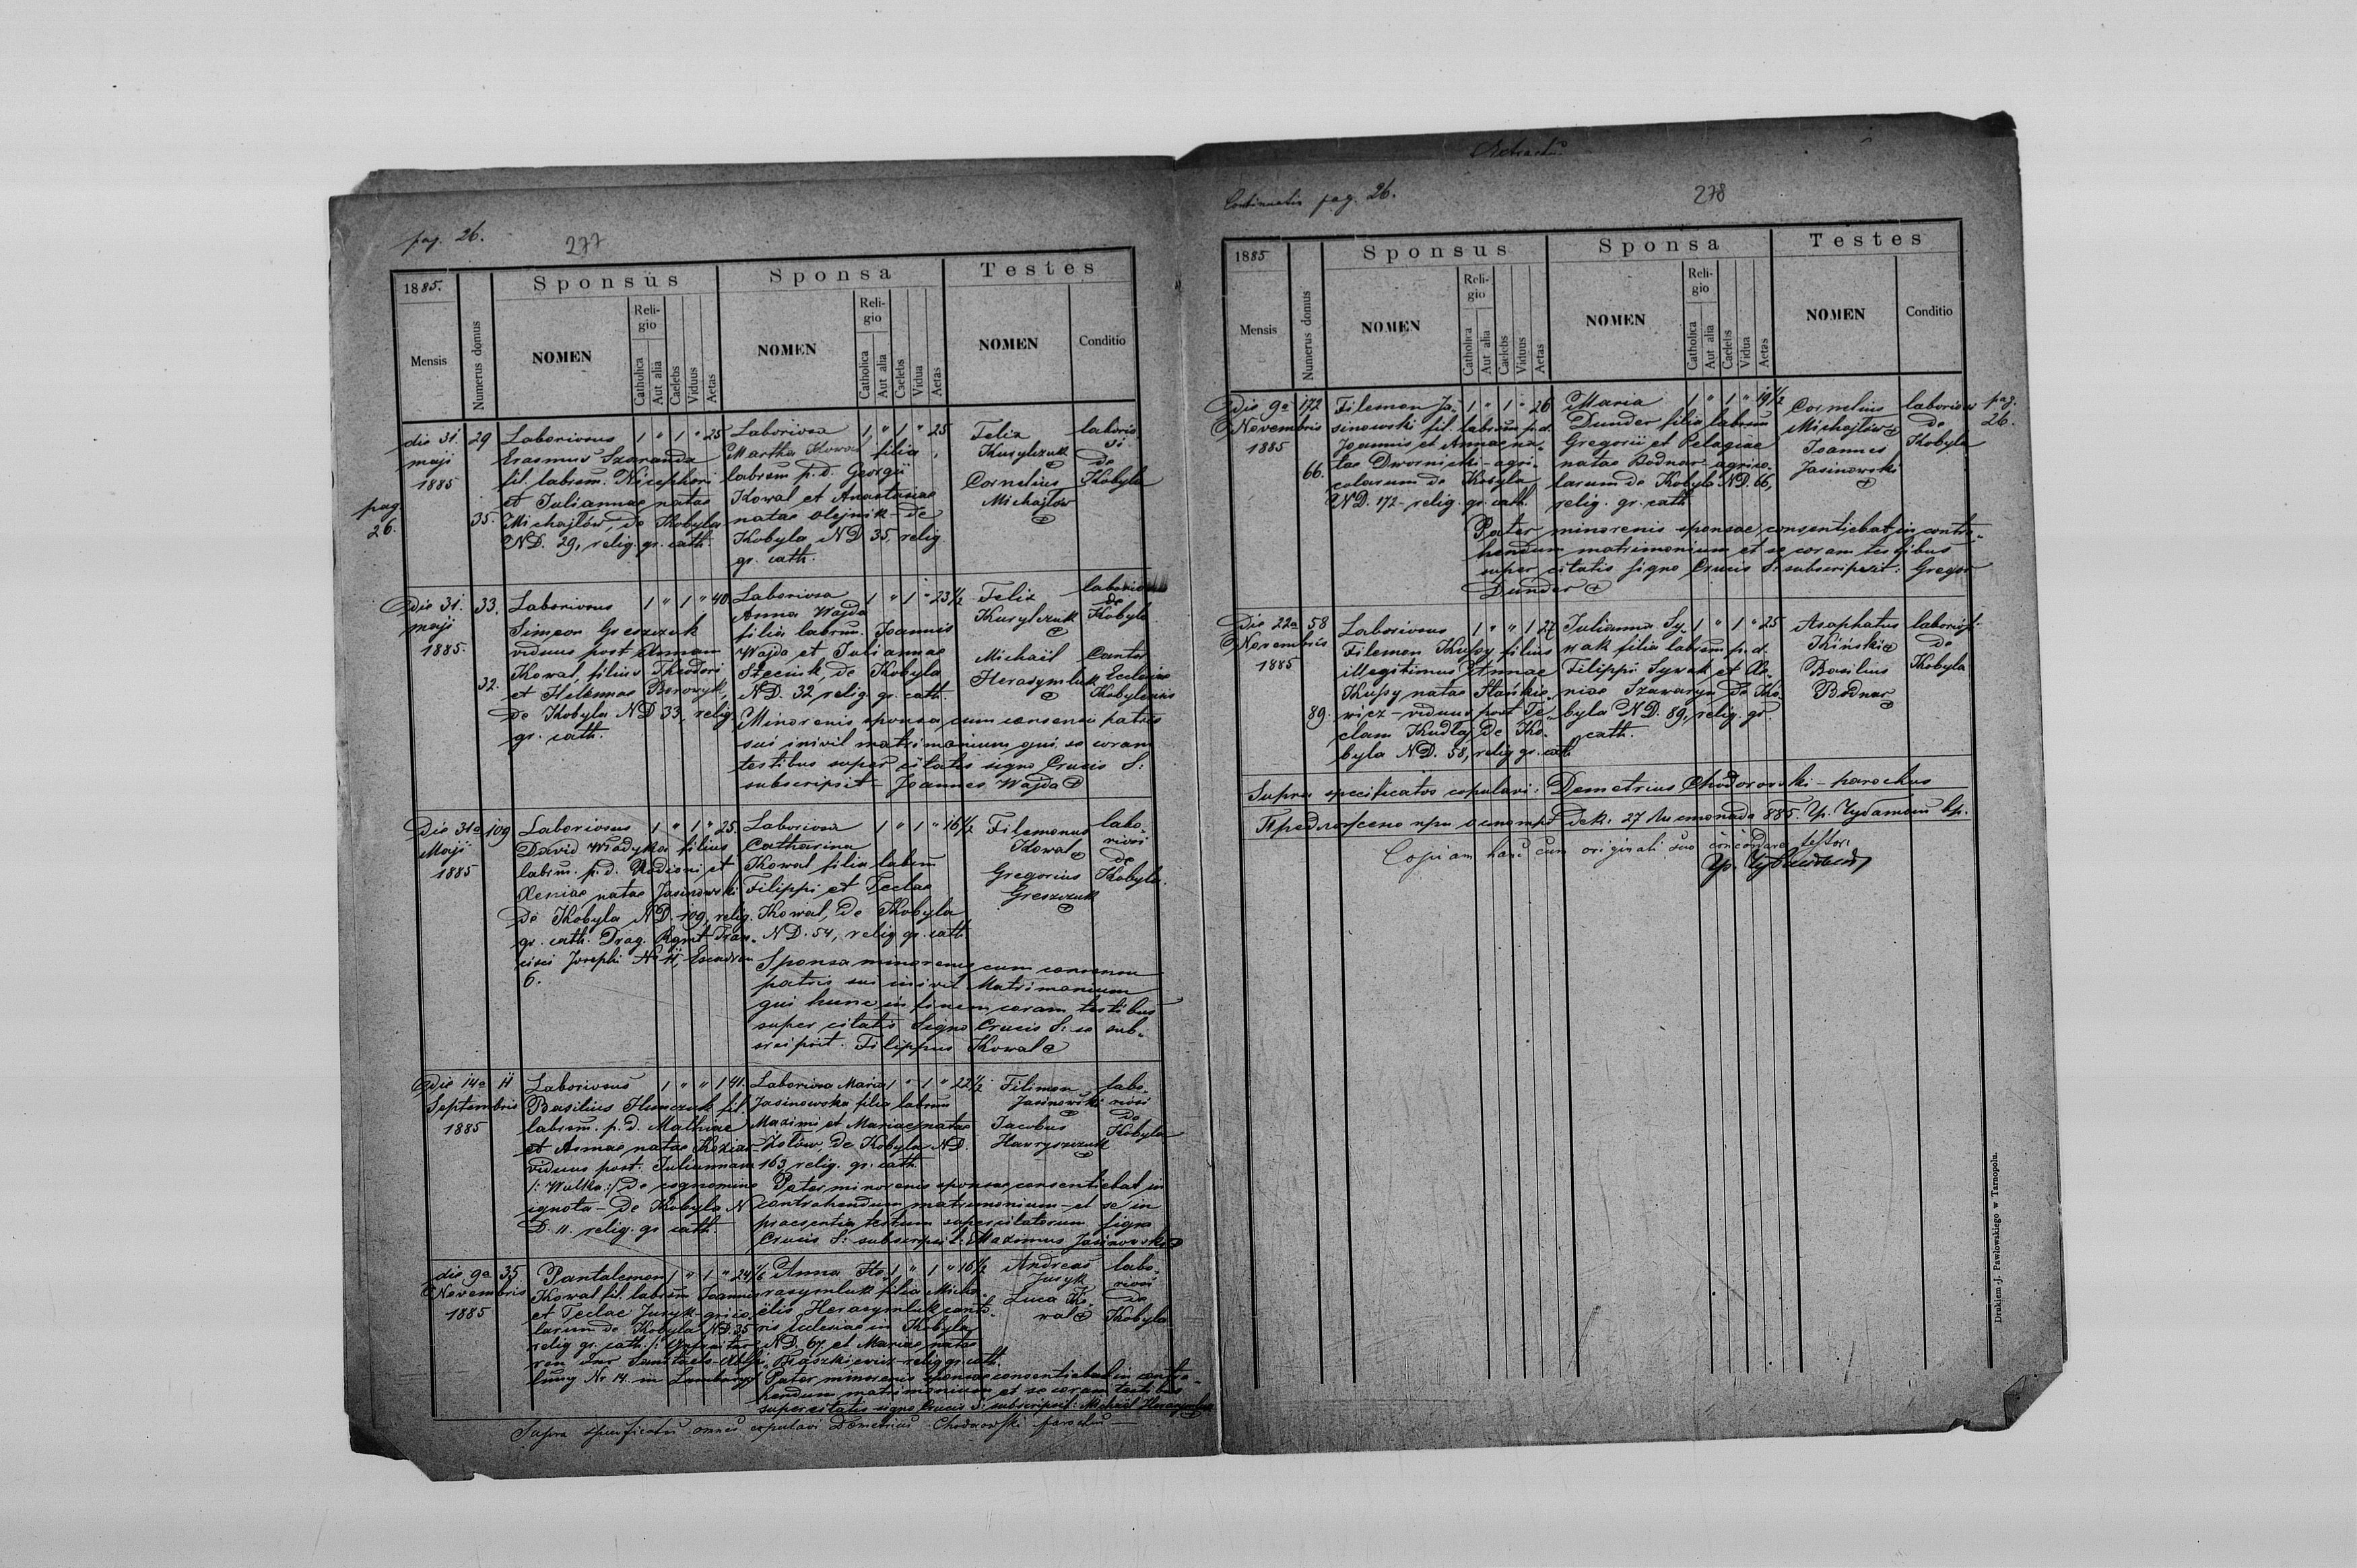 pag. 26.
277
1885.
Mensis
Numerus domus
Sponsus
NOMEN
Reli-
gio
Catholica
Aut alia
Caelebs
Viduus
Aetas
Sponsa
NOMEN
Reli-
gio
Catholica
Aut alia
Caelebs
Vidua
Aetas
Testes
NOMEN
Conditio
pag
26.
die 31.
maji
1885
29
35.
Laboriosus 1 " 1 " 25
Erasmus Szaranda
fil. labrsm. Nicephori
et Juliannae natae
Michajlów, de Kobyla
ND. 29, relig. gr. cath.
Laboriosa 1 " 1 " 25
Martha Kowal filia
labrsm p. d. Georgii
Kowal et Anastasiae
natae Olejnik – de
Kobyla ND 35, relig
gr. cath.
Felix
Kurylczuk
Cornelius
Michajlów
laborio-
si
de
Kobyla
Die 31.
maji
1885.
33.
32.
Laboriosus 1 " 1 " 40
Simeon Greszczuk
viduus post Annam
Kowal, filius Theodori
et Helennae Borowyk,
de Kobyla ND 33, relig.
gr. cath.
Laboriosa 1 " 1 " 23 1/2
Anna Wajda
filia labrsm. Joannis
Wajda et Juliannae
Steciuk, de Kobyla
ND. 32 relig. gr. cath.
Minorenis sponsa cum consensu patris
sui inivit matrimonium qui se coram
testibus super citatis signo Crucis S:
subscripsit – Joannes Wajda
Felix
Kurylczuk
Michaïl
Herasymluk
laboriosi
de
Kobyla
Cantor
Ecclesiae
Kobylensis
Die 31a
Maji
1885
109
Laboriosus 1 " 1 " 25.
David Wladyka filius
labrsm. p. d. Rodioni et
Xeniae natae Jasinowski
de Kobyla ND. 109, relig.
gr. cath. Drag. Rgmt Fran-
cisci Josephi No 11, Escadron
6.
Laboriosa 1 " 1 " 16 1/2
Catharina
Kowal filia labrsm
Filippi et Teclae
Kowal, de Kobyla
ND. 54, relig. gr. cath
Sponsa minorenis cum consensu
patris sui inivit Matrimonium
qui hunc in finem coram testibus
super citatis Signo Crucis S: se sub-
scripsit. Filippus Kowal
Filemonus
Kowal
Gregorius
Greszczuk
labo-
riosi
de
Kobyla.
Die 14a
Septembris
1885
11
Laboriosus 1 " " 1 41.
Basilius Humczuk fil.
labrsm. p. d. Mathiae
et Annae natae Koziar
viduus post. Juliannam
/: Wulka :/ de cognomine
ignota – de Kobyla N
D. 11. relig. gr. cath.
Laboriosa Maria 1 " 1 " 22 1/2
Jasinowska filia labrsm
Maximi et Mariae natae
Zolów, de Kobyla ND.
163 relig. gr. cath.
Pater minorenis sponsae consentiebat in
contrahendum matrimonium – et se in
praesentia testium supercitatorum signo
Crucis S: subscripsit: Maximus Jasinowski
Filimon
Jasinowski
Jacobus
Hawryszczuk
labo-
riosi
de
Kobyla
die 9a
Novembris
1885
35
Pantalemon 1 " 1 " 24 1/2
Kowal fil. labrsm Joannis
et Teclae Juryk – agrico-
larum de Kobyla ND. 35
relig. gr. cath.
lung Nr. 14 in Lemberg
Anna He- 1 " 1 " 16 1/2
rasymluk filia Micha-
ëlis Herasymluk canto-
ris Ecclesiae in Kobyla
ND. 67 et Mariae natae
Traszkiewicz – relig gr. cath.
Pater minorenis sponsae consentiebat in contra-
hendum matrimonium et se coram testibus
supercitatis signo Crucis S: subscripsit: Michaël Herasymluk
Andreas
Juryk
Luca Ko-
wal
labo-
riosi
de
Kobyla
Supra specificatos omnes copulavi Demetrius Chodorowski parochus
Continuatio pag. 26.
278
1885
Mensis
Numerus domus
Sponsus
NOMEN
Reli-
gio
Catholica
Aut alia
Caelebs
Viduus
Aetas
Sponsa
NOMEN
Reli-
gio
Catholica
Aut alia
Caelebs
Vidua
Aetas
Testes
NOMEN
Conditio
pag.
26.
Die 9a
Novembris
1885
172
66.
Filemon Ja- 1 " 1 " 26
sinowski fil. labrsm p. d.
Joannis et Annae na-
tae Dwornicki – agri-
colarum de Kobyla
ND. 172 – relig. gr. cath.
Maria 1 " 1 " 19 1/2
Dunder filia labrsm
Gregorii et Pelagiae
natae Bodnar – agrico-
larum de Kobyla ND. 66,
relig. gr. cath
Pater minorenis sponsae consentiebat in contra-
hendum matrimonium et se coram testibus
super citatis signo Crucis S: subscripsit: Gregor
Dunder
Cornelius
Michajlów
Joannes
Jasinowski
laboriosi
de
Kobyla
Die 22a
Novembris
1885
58
89.
Laboriosus 1 " " 1 27
Filemon Kupsy filius
illegitimus Annae
Kupsy natae Stańkie-
wicz – viduus post Te-
clam Kudla, de Ko-
byla ND. 58, relig gr. cath
Julianna Sy- 1 " 1 " 25
wak filia labrsm p. d.
Filippi Sywak et Xe-
niae Szawaryn de Ko-
byla ND. 89, relig. gr.
cath.
Asaphatus
Kiński
Basilius
Bodnar
laboriosi
de
Kobyla
Supra specificatos copulavi: Demetrius Chodorowski – parochus
Copiam hanc cum originali suo concordare testor.
Drukiem J. Pawłowskiego w Tarnopolu.